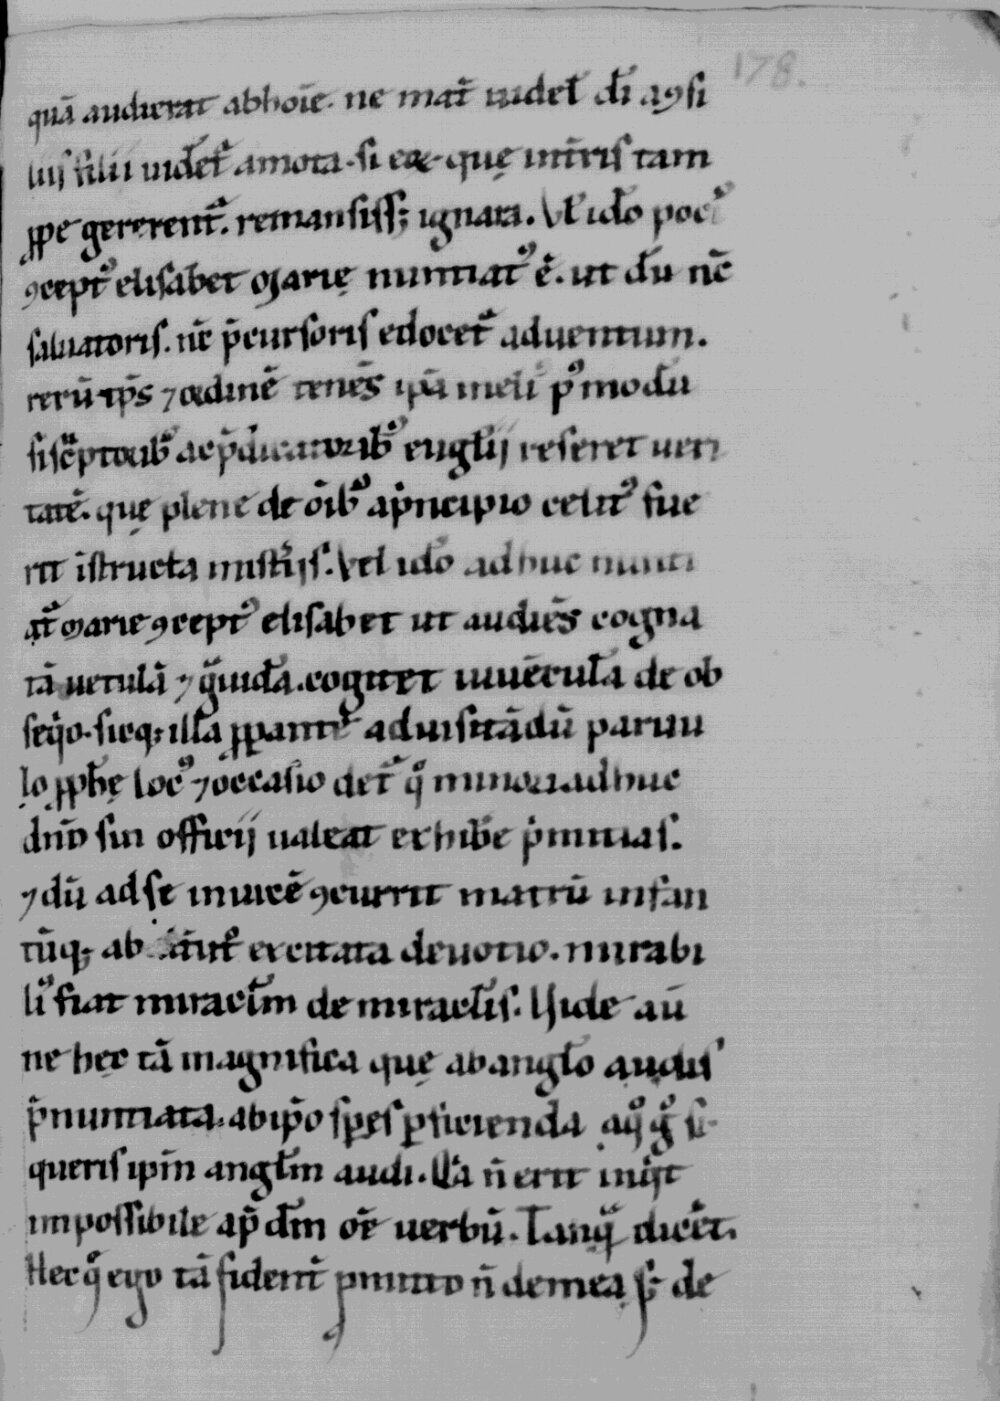 178.
quā audierat ab hoīe. ne mat̄ uidet᷑ dī ꝯsi
liis filii uidet᷑ amota. si ea que ī tr̄ris tam
ꝓpe gererent᷑. remansiss; ignara. Vt̄ iđo poci᷒
ꝯcept᷒ elisabet marię nuntiat᷒ ē. ut dū nc̄
saluatoris. nc̄ p̄cursoris edocet᷑ aduentum.
rerū tp̄s ⁊ ordinē tenēs ip̄a meli᷒ p᷒modū
sc̄ptorib᷒ ac p̄dicatorib᷒ euglīj reseret ueri
tatē. quę plene de oīb᷒ a p̄ncipio celit᷒ fue
rit īstructa mist̄ijs. Vel iđo adhuc nunti
at᷑ marie ꝯcept᷒ elisabet ut audiēs cogna
tā uetulā ⁊ gͣuidā. cogitet iuuēcula de ob
seqͥo. sicq; illa ꝓꝑante ad uisitādū paruu
lo ꝓph̄ę loc᷒ ⁊ occasio det᷑ qͦ minori adhuc
dn̄o sui officij ualeat exhib̄e p̄mitias.
⁊ dū ad se inuicē ꝯcurrit matrū infan
tūq; ab excitata deuotio. mirabi
li᷒ fiat miracl̄m de miracl̄is. Vide aū
ne hęc tā magnifica quę ab angl̄o audis
p̄nuntiata. ab ip̄o speſ ꝑficienda a qͦ gͦ si
queris ip̄m angl̄m audi. Qͣa n̄ erit inqͥt
impossibile ap̄ dm̄ om̄e uerbū. Tanqͣ dicēt.
Hec qͦ ego tā fident᷑ ꝓmitto n̄ de mea s; de